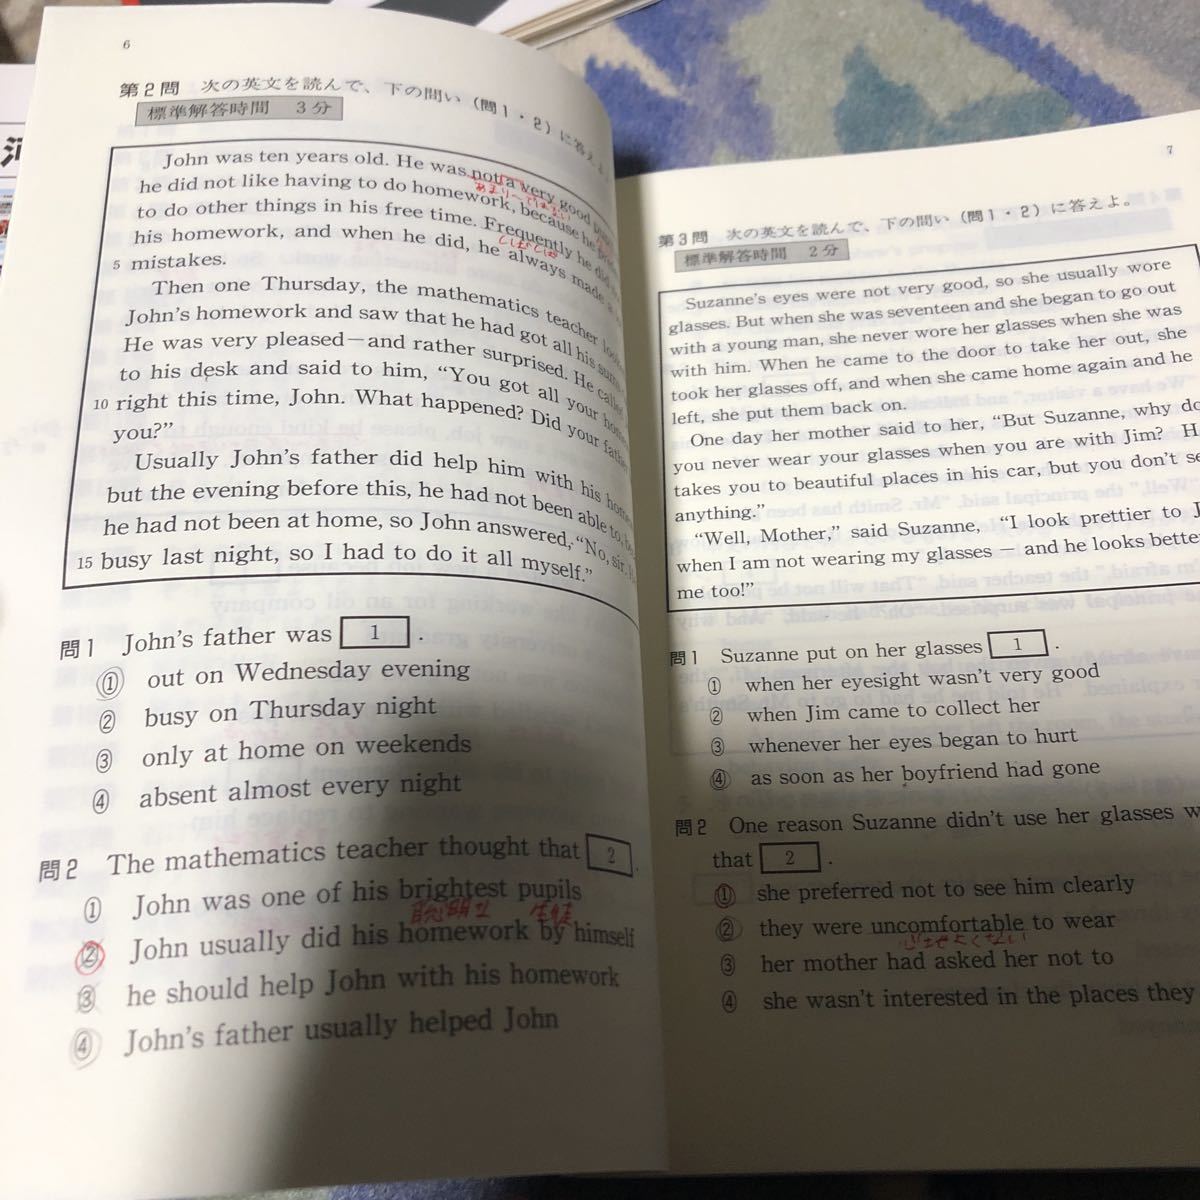 6
第2問 次の英文を読んで、下の問い(問1・2)に答えよ
標準解答時間 3分
John was ten years old. He was not a very good
he did not like having to do homework, because he
to do other things in his free time. Frequently he did
his homework, and when he did, he always made a
5 mistakes.
Then one Thursday, the mathematics teacher
John's homework and saw that he had got all his sums
He was very pleased—and rather surprised. He called
to his desk and said to him, “You got all your
10 right this time, John. What happened? Did your father
you?”
Usually John's father did help him with his
but the evening before this, he had not been able to,
he had not been at home, so John answered, “No, sir.
15 busy last night, so I had to do it all myself.”
あまり〜ではない
しばしば
問1 John's father was 1 .
① out on Wednesday evening
② busy on Thursday night
③ only at home on weekends
④ absent almost every night
問2 The mathematics teacher thought that 2 .
① John was one of his brightest pupils
聡明な 生徒
② John usually did his homework by himself
③ he should help John with his homework
④ John's father usually helped John
7
第3問 次の英文を読んで、下の問い(問1・2)に答えよ。
標準解答時間 2分
Suzanne's eyes were not very good, so she usually wore
glasses. But when she was seventeen and she began to go out
with a young man, she never wore her glasses when she was
with him. When he came to the door to take her out, she
took her glasses off, and when she came home again and he
left, she put them back on.
One day her mother said to her, “But Suzanne, why do
you never wear your glasses when you are with Jim? H
takes you to beautiful places in his car, but you don't se
anything.”
“Well, Mother,” said Suzanne, “I look prettier to J
when I am not wearing my glasses — and he looks bette
me too!”
問1 Suzanne put on her glasses 1 .
① when her eyesight wasn't very good
② when Jim came to collect her
③ whenever her eyes began to hurt
④ as soon as her boyfriend had gone
問2 One reason Suzanne didn't use her glasses w
that 2 .
① she preferred not to see him clearly
② they were uncomfortable to wear
心地よくない
③ her mother had asked her not to
④ she wasn't interested in the places they